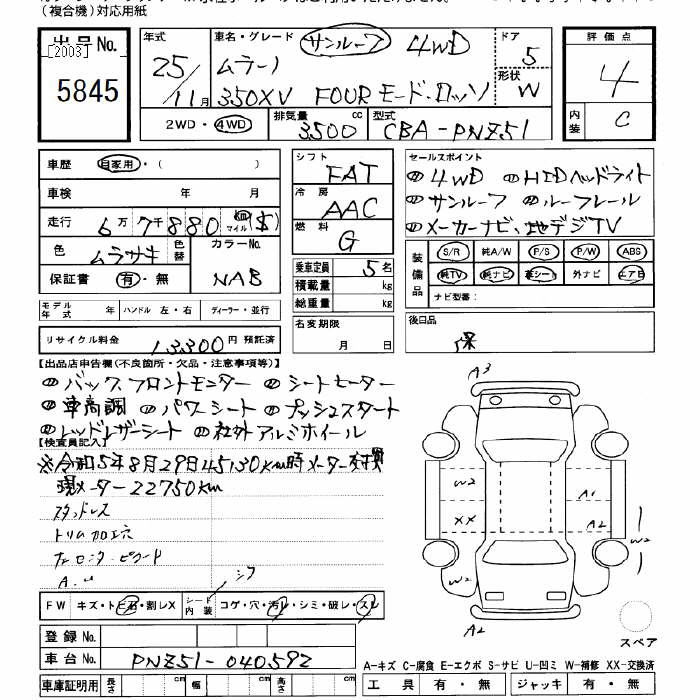 （複合機）対応用紙
出品No.
[2003]
5845
年式 25/11月
車名・グレード サンルーフ 4WD
ムラーノ
350XV FOURモード・ロッソ
ドア 5
形状 W
2WD・4WD
排気量 3500 cc
型式 CBA-PNZ51
評価点
4
内装 C
車歴 自家用・( )
車検 年 月
走行 6万7千880 km マイル ($)
色 ムラサキ 色替 カラーNo. NAB
保証書 有・無
モデル年式 年 ハンドル 左・右 ディーラー・並行
リサイクル料金 13300円 預託済
シフト FAT
冷房 AAC
燃料 G
乗車定員 5名
積載量 kg
総重量 kg
名変期限
月 日
セールスポイント
4WD HIDヘッドライト
サンルーフ ルーフレール
メーカーナビ、地デジTV
装備品
S/R 純A/W P/S P/W ABS
純TV 純ナビ 革シート 外ナビ エアB
ナビ型番：
後日品
保
【出品店申告欄(不良箇所・欠品・注意事項等)】
バック、フロントモニター シートヒーター
車高調 パワーシート プッシュスタート
レッドレザーシート 社外アルミホイール
【検査員記入】
※令和5年8月29日45,130km時メーター交換
現メーター22750km
スタッドレス
トリム加工穴
A3
W2
XX
W2
A1
A2
W2
A2
スペア
シワ
FW キズ・トビ石・割レX
シート内装 コゲ・穴・汚レ・シミ・破レ・スレ
登録No.
車台No. PNZ51-040592
車庫証明用 長さ cm 幅 cm 高さ cm
A-キズ C-腐食 E-エクボ S-サビ U-凹ミ W-補修 XX-交換済
工具 有・無 ジャッキ 有・無